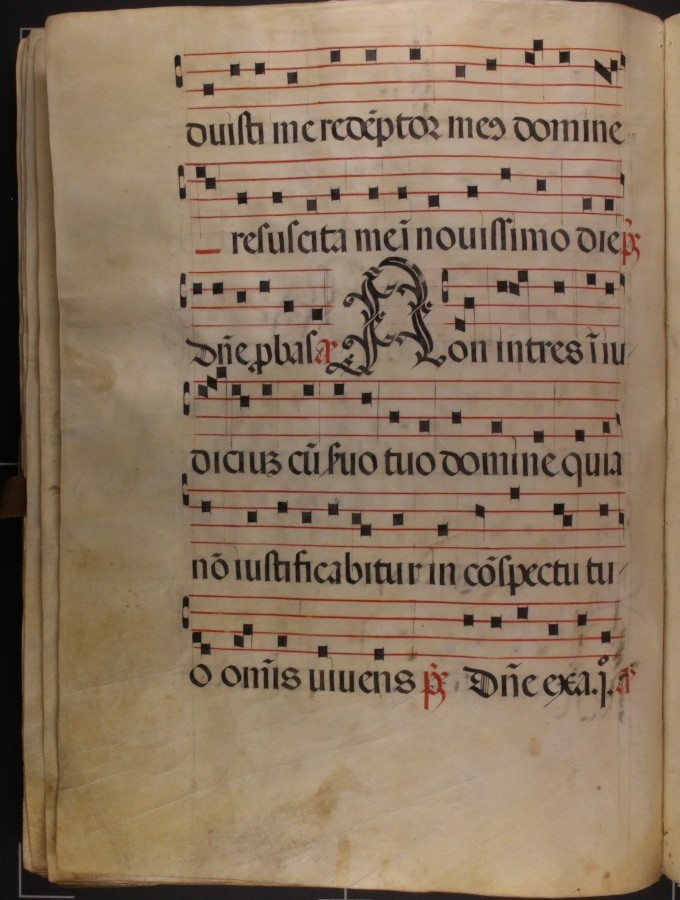 duisti me redẽptor meꝰ domine
resuscita me ĩ nouissimo die p̃s
Dñe ꝓbas añ Non intres ĩ iu-
diciuꝫ cũ suo tuo domine quia
nõ iustificabitur in cõspectu tu-
o om̃is uiuens p̃s Dñe exa.j.º añ